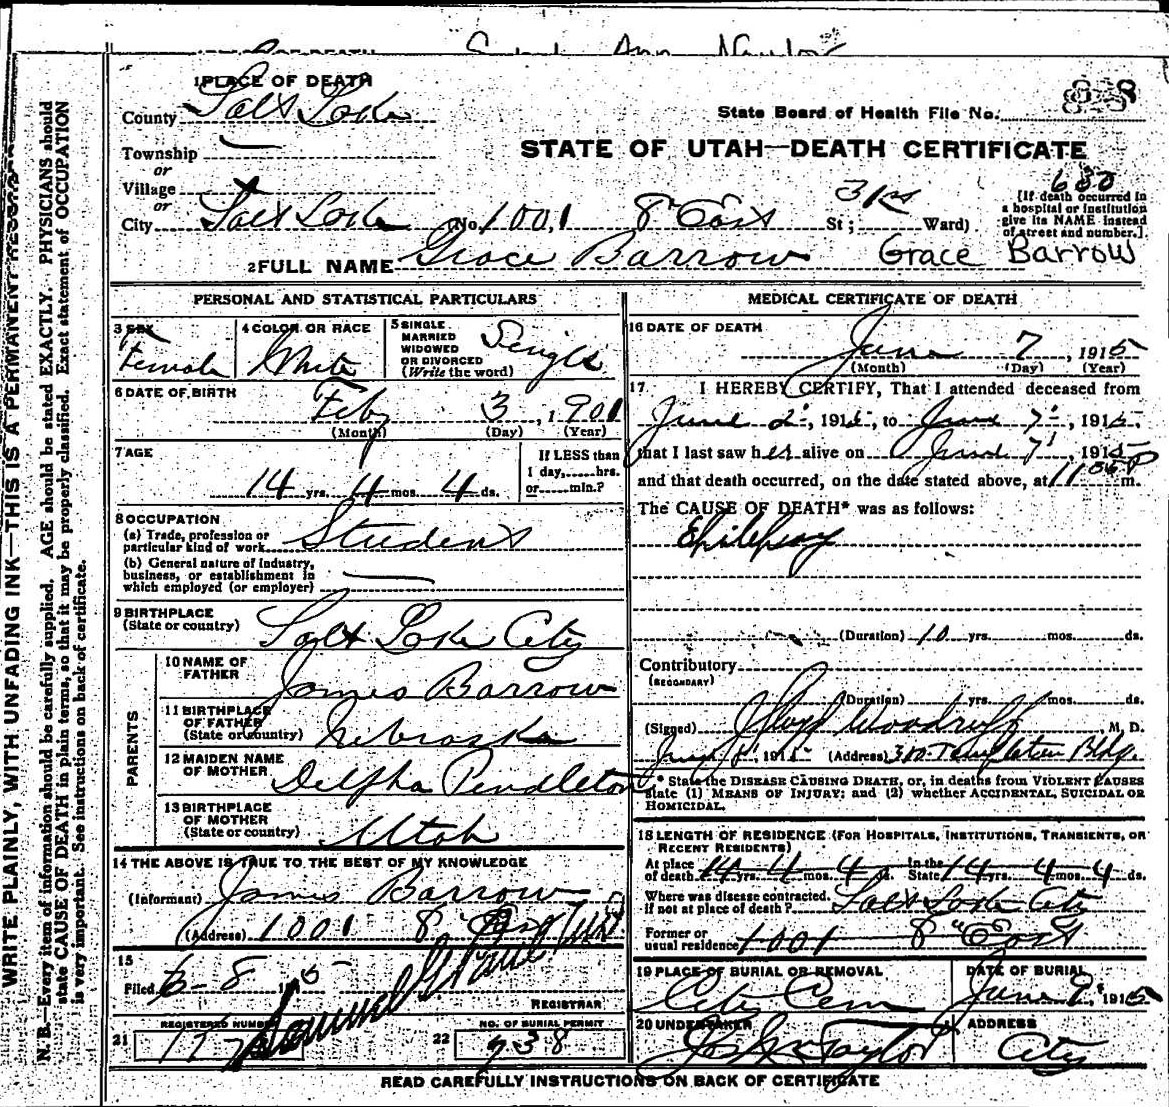 Ann
1 PLACE OF DEATH
County Salt Lake
State Board of Health File No. 858
Township
or
Village
or
City Salt Lake
STATE OF UTAH—DEATH CERTIFICATE
(No. 1001 8" East St; Ward)
[If death occurred in
a hospital or institution
give its NAME instead
of street and number.]
2 FULL NAME Grace Barrow Grace Barrow
PERSONAL AND STATISTICAL PARTICULARS
3 SEX
Female
4 COLOR OR RACE
White
5 SINGLE
MARRIED
WIDOWED
OR DIVORCED
(Write the word)
Single
6 DATE OF BIRTH
Feby 3, 1901
(Month) (Day) (Year)
7 AGE
14 yrs. 4 mos. 4 ds.
If LESS than
1 day,......hrs.
or......min.?
8 OCCUPATION
(a) Trade, profession or
particular kind of work Student
(b) General nature of industry,
business, or establishment in
which employed (or employer)
9 BIRTHPLACE
(State or country) Salt Lake City
PARENTS
10 NAME OF
FATHER James Barrow
11 BIRTHPLACE
OF FATHER
(State or country) Nebraska
12 MAIDEN NAME
OF MOTHER Delpha Pendleton
13 BIRTHPLACE
OF MOTHER
(State or country) Utah
14 THE ABOVE IS TRUE TO THE BEST OF MY KNOWLEDGE
(Informant) James Barrow
(Address) 1001 8" East
15
Filed 6-8 15
REGISTRAR
REGISTERED NUMBER
21
NO. OF BURIAL PERMIT
22 938
MEDICAL CERTIFICATE OF DEATH
16 DATE OF DEATH
June 7, 1915
(Month) (Day) (Year)
17 I HEREBY CERTIFY, That I attended deceased from
June 2", 1915, to June 7", 1915.
that I last saw her alive on June 7", 1915
and that death occurred, on the date stated above, at m.
The CAUSE OF DEATH* was as follows:
Epilepsy
(Duration) 10 yrs. mos. ds.
Contributory
(SECONDARY)
(Duration) yrs. mos. ds.
(Signed) Woodruff M. D.
June 8", 1915 (Address) 300 Templeton Bldg.
* State the DISEASE CAUSING DEATH, or, in deaths from VIOLENT CAUSES
state (1) MEANS OF INJURY; and (2) whether ACCIDENTAL, SUICIDAL OR
HOMICIDAL.
18 LENGTH OF RESIDENCE (FOR HOSPITALS, INSTITUTIONS, TRANSIENTS, OR
RECENT RESIDENTS)
At place
of death 14 yrs. 4 mos. 4 ds. In the
State 14 yrs. 4 mos. 4 ds.
Where was disease contracted,
if not at place of death? Salt Lake City
Former or
usual residence 1001 8" East
19 PLACE OF BURIAL OR REMOVAL
City Cem
DATE OF BURIAL
June 9", 1915
20 UNDERTAKER
Taylor
ADDRESS
City
READ CAREFULLY INSTRUCTIONS ON BACK OF CERTIFICATE
WRITE PLAINLY, WITH UNFADING INK—THIS IS A PERMANENT RECORD
N. B.—Every item of information should be carefully supplied. AGE should be stated EXACTLY. PHYSICIANS should
state CAUSE OF DEATH in plain terms, so that it may be properly classified. Exact statement of OCCUPATION
is very important. See instructions on back of certificate.